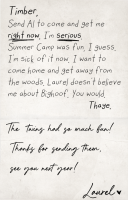 Timber,
Send Al to come and get me
right now. I'm serious.
Summer Camp was fun, I guess.
I'm sick of it now. I want to
come home and get away from
the woods. Laurel doesn't believe
me about Bighoof. You would.
Thaye.
The twins had so much fun!
Thanks for sending them,
see you next year!
Laurel